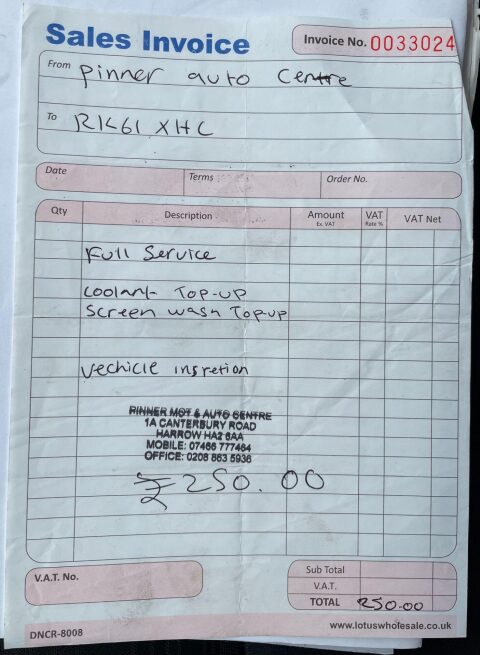 Sales Invoice
Invoice No. 0033024
From Pinner auto Centre
To RK61 XHC
Date Terms Order No.
Qty Description Amount Ex. VAT VAT Rate % VAT Net
Full Service
Coolant Top-up
Screen wash Top-up
Vechicle insretion
PINNER MOT & AUTO CENTRE
1A CANTERBURY ROAD
HARROW HA2 6AA
MOBILE: 07466 777464
OFFICE: 0208 863 5936
£250.00
V.A.T. No.
Sub Total
V.A.T.
TOTAL £250.00
DNCR-8008
www.lotuswholesale.co.uk